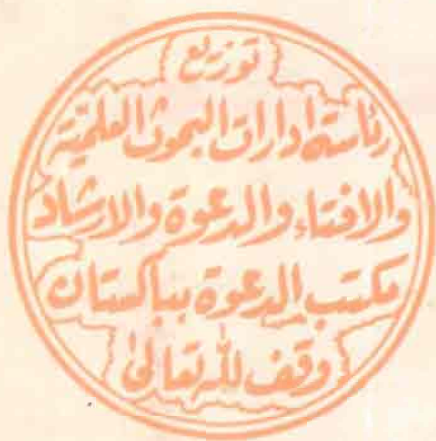 توزيع
رئاسة ادارات البحوث العلمية
والافتاء والدعوة والارشاد
مكتب الدعوة بباكستان
وقف لله تعالى